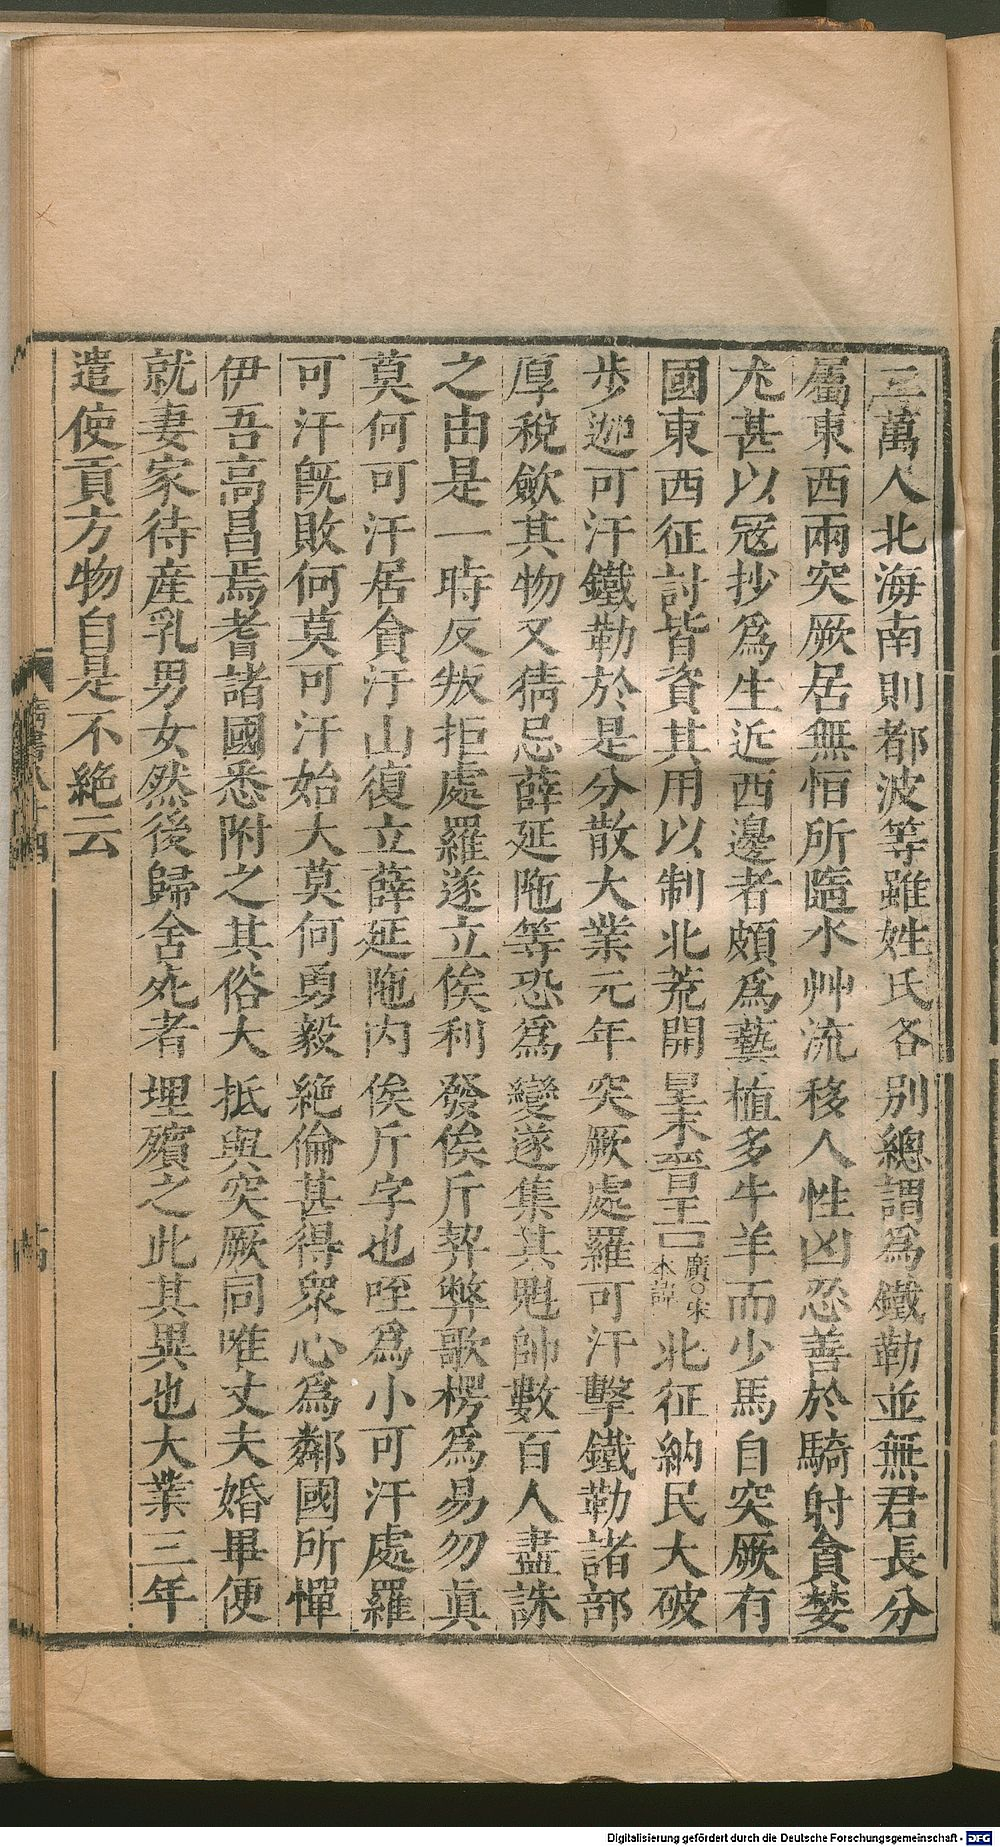 三萬人北海南則都波等雖姓氏各別總謂爲鐵勒並無君長分
屬東西兩突厥居無恒所隨水艸流移人性凶忍善於騎射貪婪
尤甚以寇抄爲生近西邊者頗爲藝植多牛羊而少馬自突厥有
國東西征討皆資其用以制北荒開皇末晉王廣○宋本諱北征納民大破
步迦可汗鐵勒於是分散大業元年突厥處羅可汗擊鐵勒諸部
厚稅斂其物又猜忌薛延陁等恐爲變遂集其魁帥數百人盡誅
之由是一時反叛拒處羅遂立俟利發俟斤契弊歌楞爲易勿眞
莫何可汗居貪汗山復立薛延陁内俟斤字也咥爲小可汗處羅
可汗旣敗何莫可汗始大莫何勇毅絶倫甚得衆心爲鄰國所憚
伊吾高昌焉耆諸國悉附之其俗大抵與突厥同唯丈夫婚畢便
就妻家待産乳男女然後歸舍死者埋殯之此其異也大業三年
遣使貢方物自是不絶云
隋書八十四
Digitalisierung gefördert durch die Deutsche Forschungsgemeinschaft - DFG